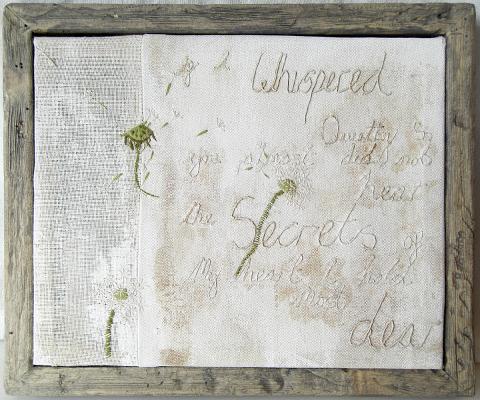 if I Whispered
Quietly So
you almost did not
hear
the Secrets of
My heart I hold
most
dear